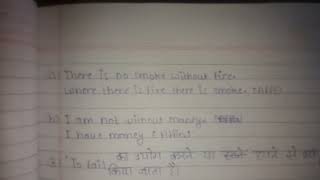 a) There is no smoke without fire.
where there is fire there is smoke.
b) I am not without money.
I have money
③ "To fail" का उपयोग करने या
किया जाता है।